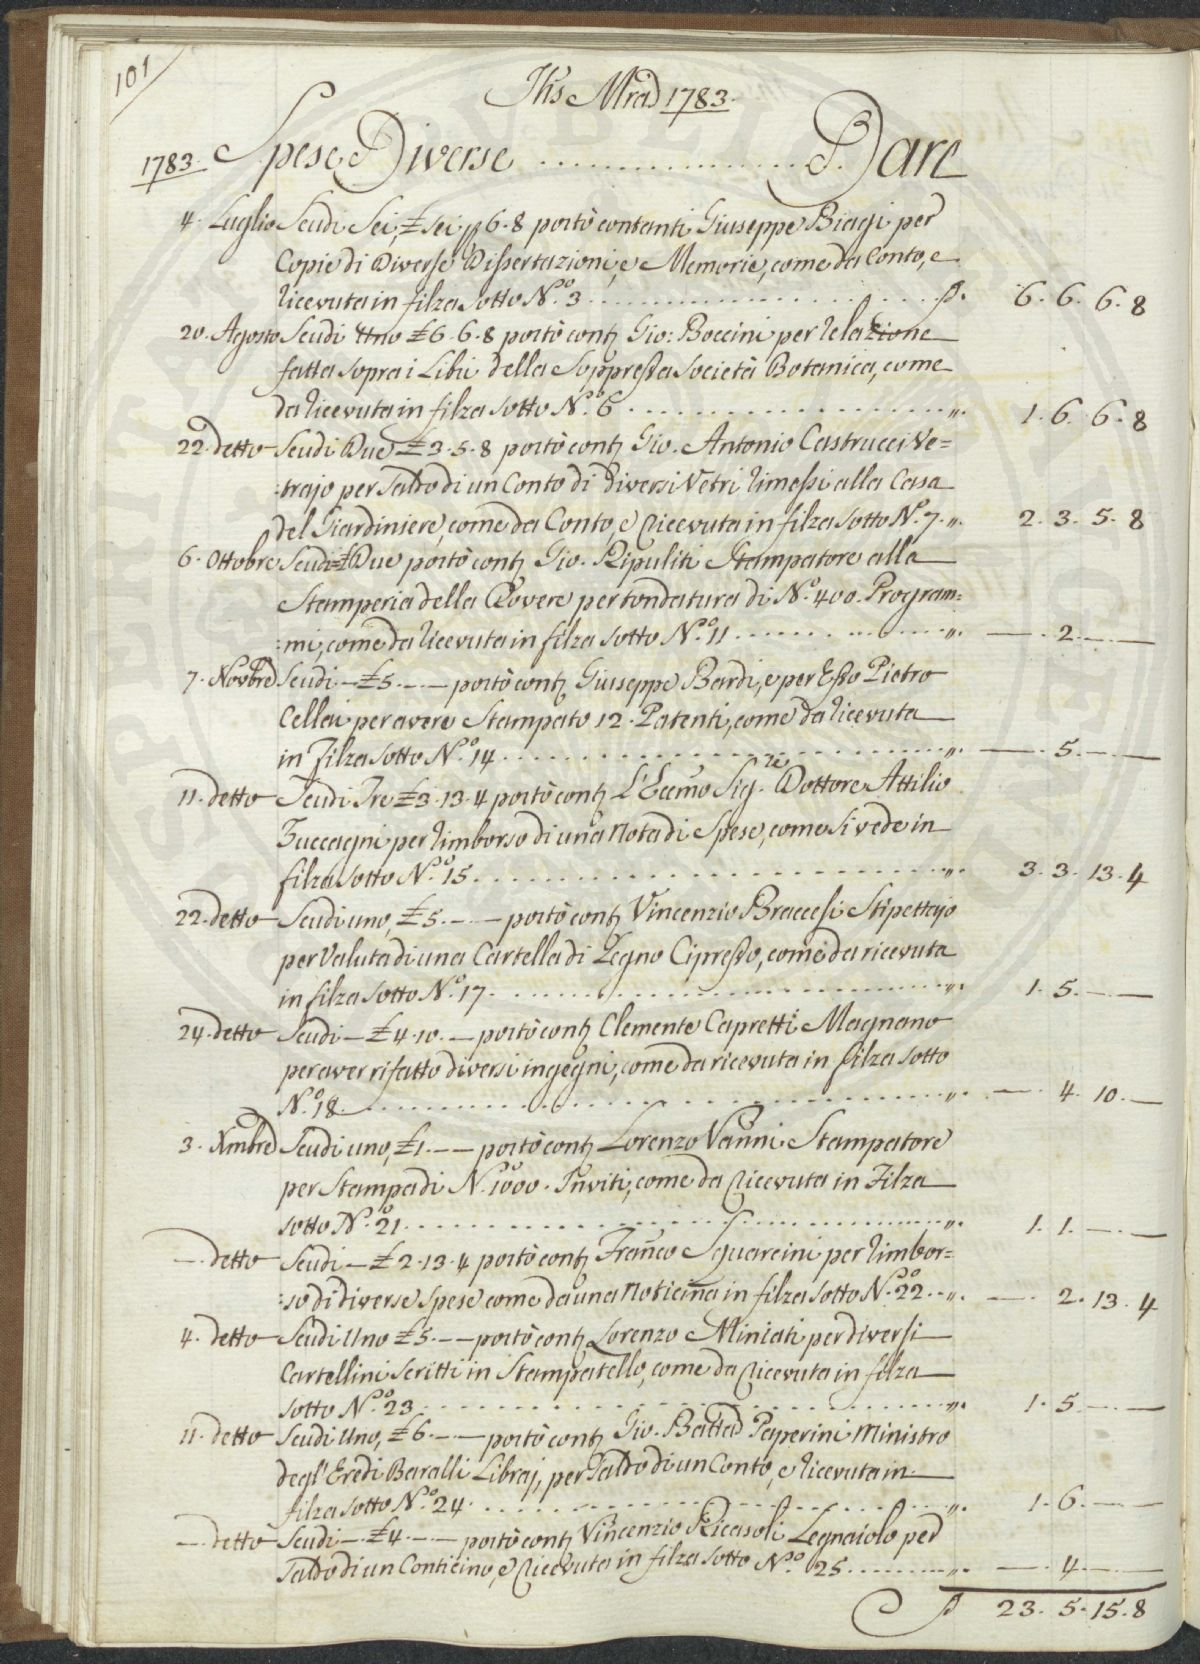 101
Jhs Mra 1783.
1783. Spese Diverse .................. Dare
4. Luglio Scudi Sei, £ sei 6.8 portò contanti Giuseppe Biagi per
Copie di Diverse Dissertazioni, e Memorie, come da Conto, e
ricevuta in filza sotto N.º 3 ........ 6. 6. 6. 8
20. Agosto Scudi Uno £ 6.6.8 portò conti Gio: Boccini per relazione
fatta sopra i Libri della Soppressa Società Botanica, come
da ricevuta in filza sotto N.º 6 ........ „. 1. 6. 6. 8
22. detto Scudi Due £ 3.5.8 portò conti Gio. Antonio Castrucci Ve=
:trajo per Saldo di un Conto di diversi Vetri rimessi alla Casa
del Giardiniere, come da Conto, e ricevuta in filza sotto N.º 7. „. 2. 3. 5. 8
6. Ottobre Scudi=£ Due portò conti Gio. Ripuliti Stampatore alla
Stamperia della Rovere per tondatura di N.º 400. Program=
:mi, come da ricevuta in filza sotto N.º 11 ........ „. — . 2. — . —
7. Novbre Scudi — £ 5. — . — portò conti Giuseppe Bardi, e per Esso Pietro
Cellai per avere Stampato 12. Patenti, come da ricevuta
in Filza sotto N.º 14 ........ „. — . 5. — . —
11. detto Scudi Tre £ 3.13.4 portò conti L'Eccmo Sig.re Dottore Attilio
Zuccagni per rimborso di una nota di Spese, come si vede in
filza sotto N.º 15 ........ „. 3. 3. 13. 4
22. detto Scudi uno, £ 5. — . — portò conti Vincenzio Braccesi Stipettajo
per Valuta di una Cartella di Legno Cipresso, come da ricevuta
in filza sotto N.º 17 ........ „. 1. 5. — . —
24. detto Scudi — £ 4.10. — portò conti Clemente Capretti Magnano
per aver rifatto diversi ingegni, come da ricevuta in filza sotto
N.º 18. ........ „. — . 4. 10. —
3. Xmbre Scudi uno, £ 1. — — portò conti Lorenzo Vanni Stampatore
per Stampa di N.º 1000. Inviti, come da ricevuta in Filza
sotto N.º 21 ........ „. 1. 1. — . —
— . detto Scudi — £ 2.13.4 portò conti Franco Squarcini per rimbor=
:so di diverse spese come da una noticina in filza sotto N.º 22 .. „. — . 2. 13. 4
4. detto Scudi Uno £ 5. — — portò conti Lorenzo Miniati per diversi
Cartellini scritti in Stampatello, come da ricevuta in filza
sotto N.º 23 ........ „. 1. 5. — . —
11. detto Scudi Uno, £ 6. — — portò conti Gio. Batta Paperini Ministro
degl' Eredi Baralli Libraj, per Saldo di un Conto, e ricevuta in
filza sotto N.º 24 ........ „. 1. 6. — . —
— . detto Scudi — £ 4. — . — portò conti Vincenzio Ricasoli Legnaiolo per
Saldo di un Conticino, e ricevuta in filza sotto N.º 25 ........ „. — . 4. — . —
23. 5. 15. 8